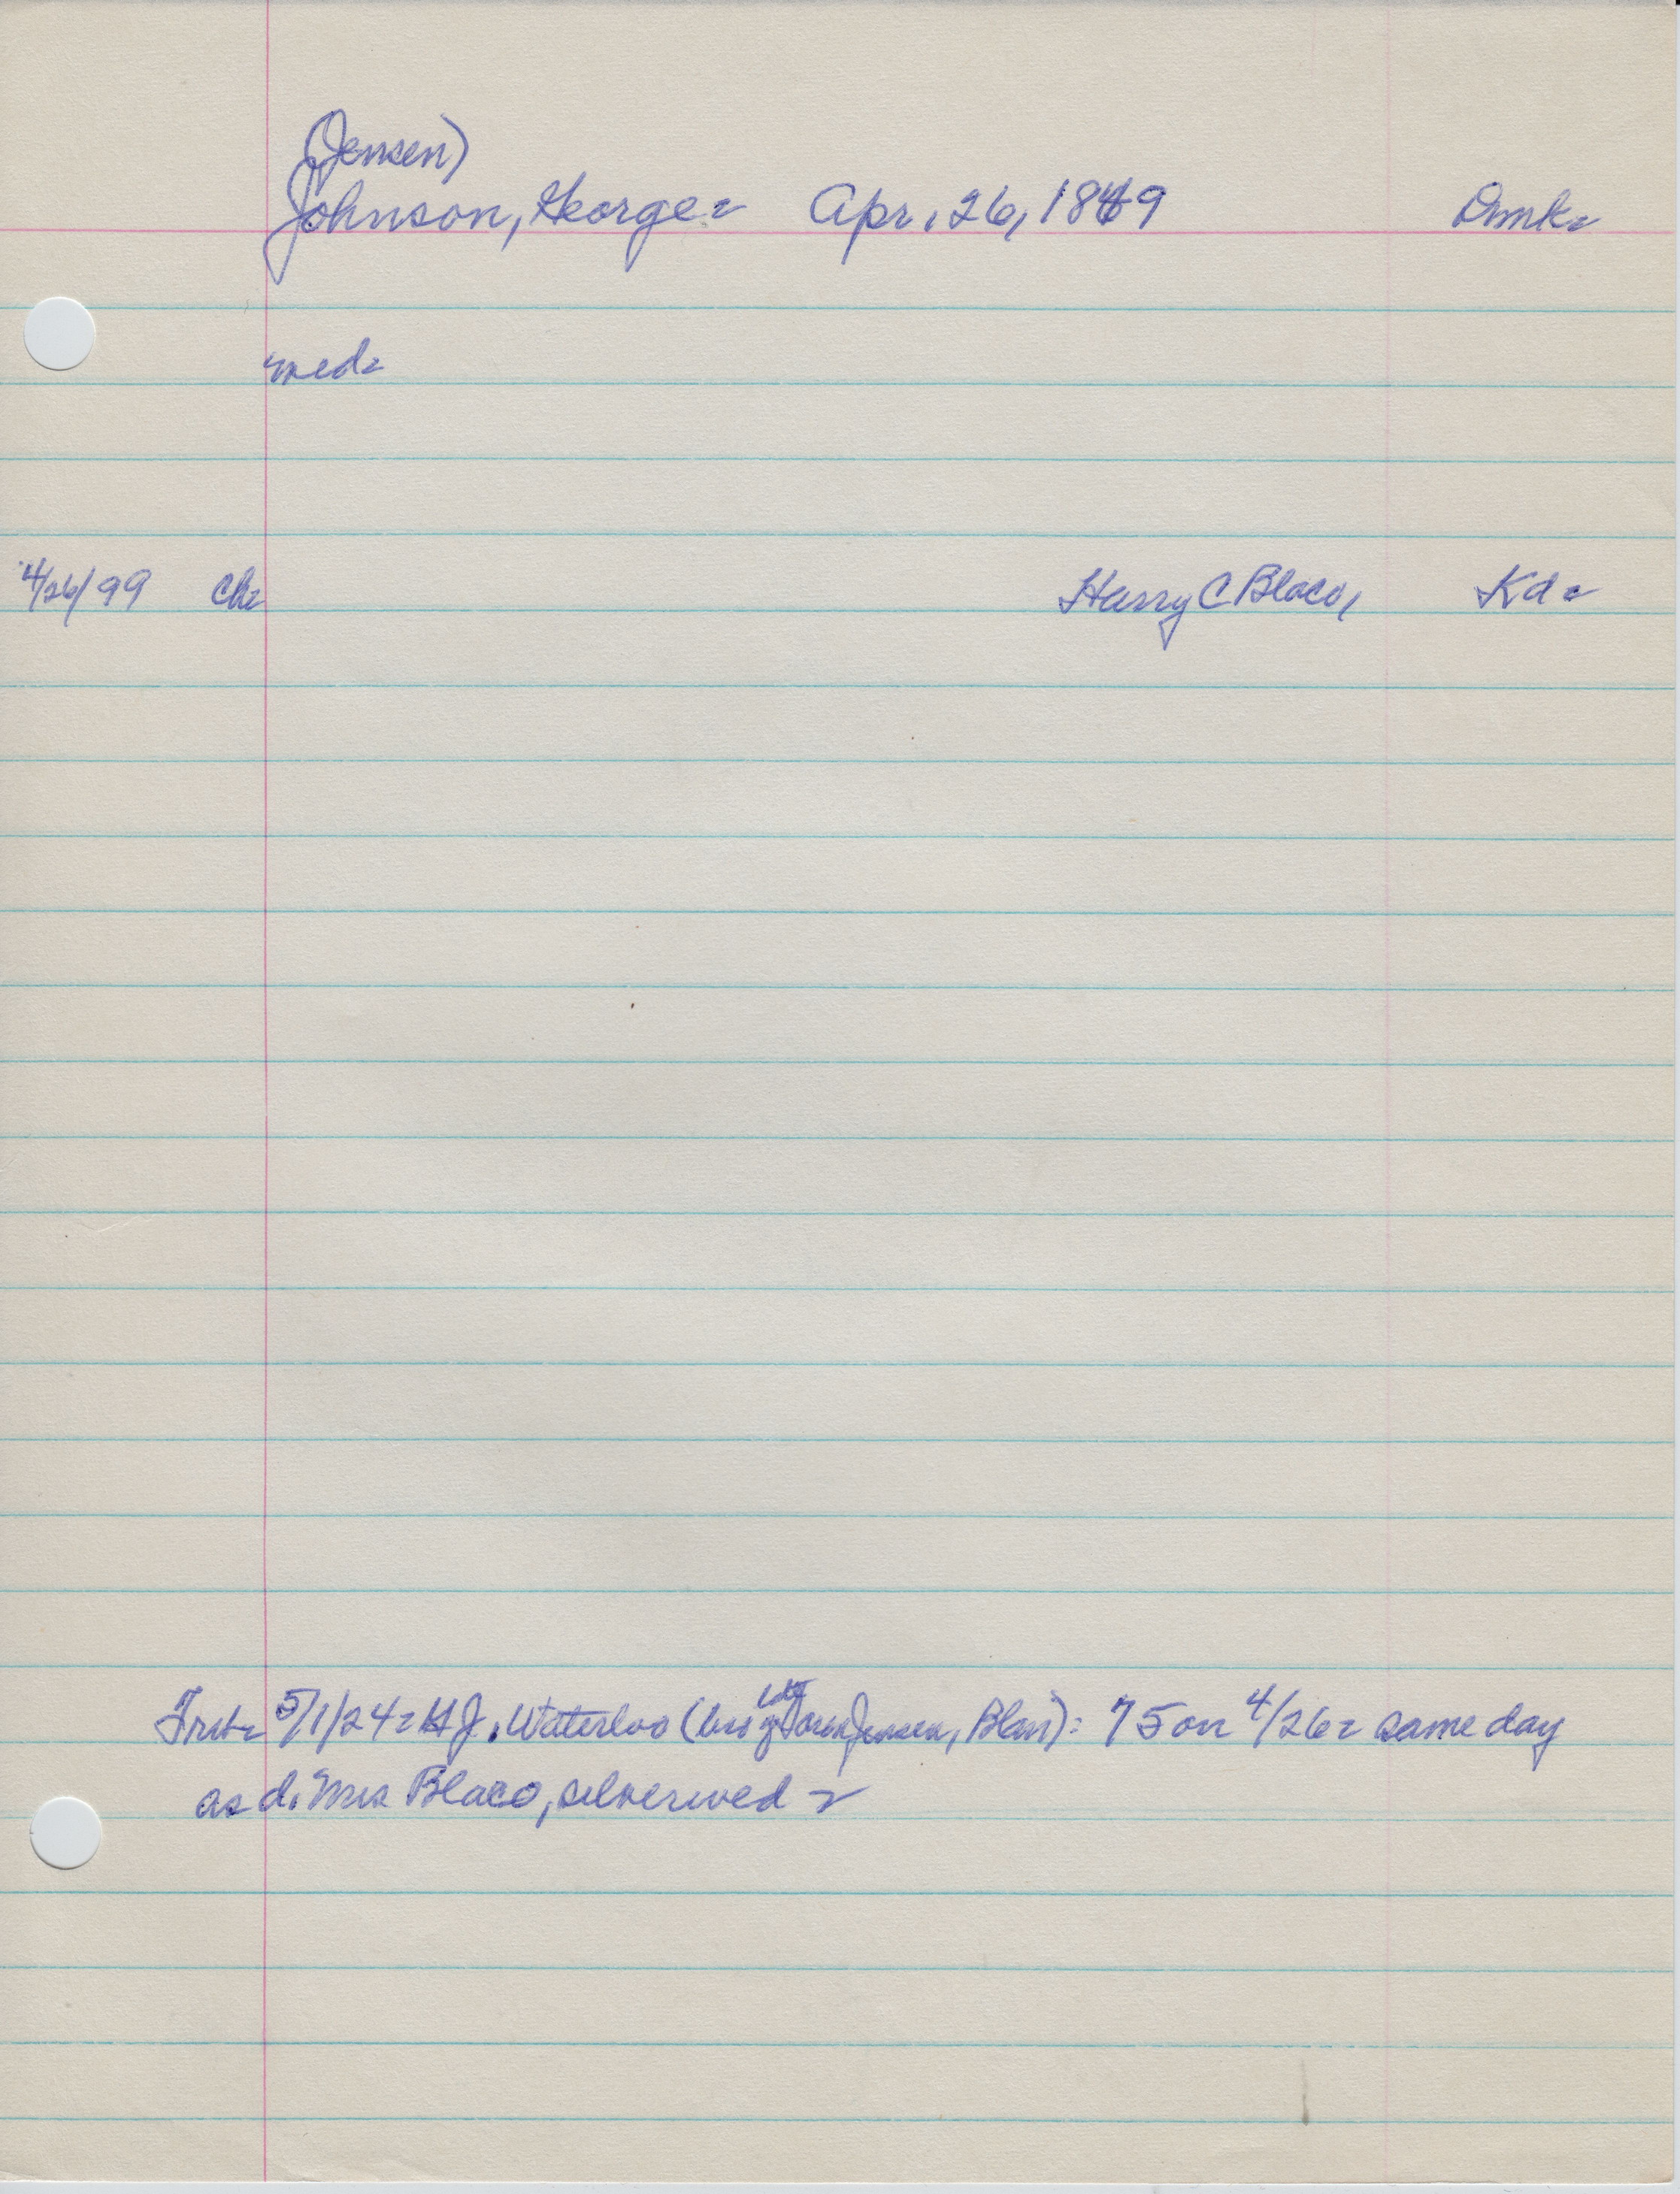 (Jensen)
Johnson, George= Apr. 26, 1849 Dmk=
wed=
4/26/99 Ch= Harry C Blaco, Kd=
5/1/24= H J. Waterloo (bro of late Soren Jensen, Blair): 75 on 4/26= same day
as d. Mrs Blaco, silverwed=